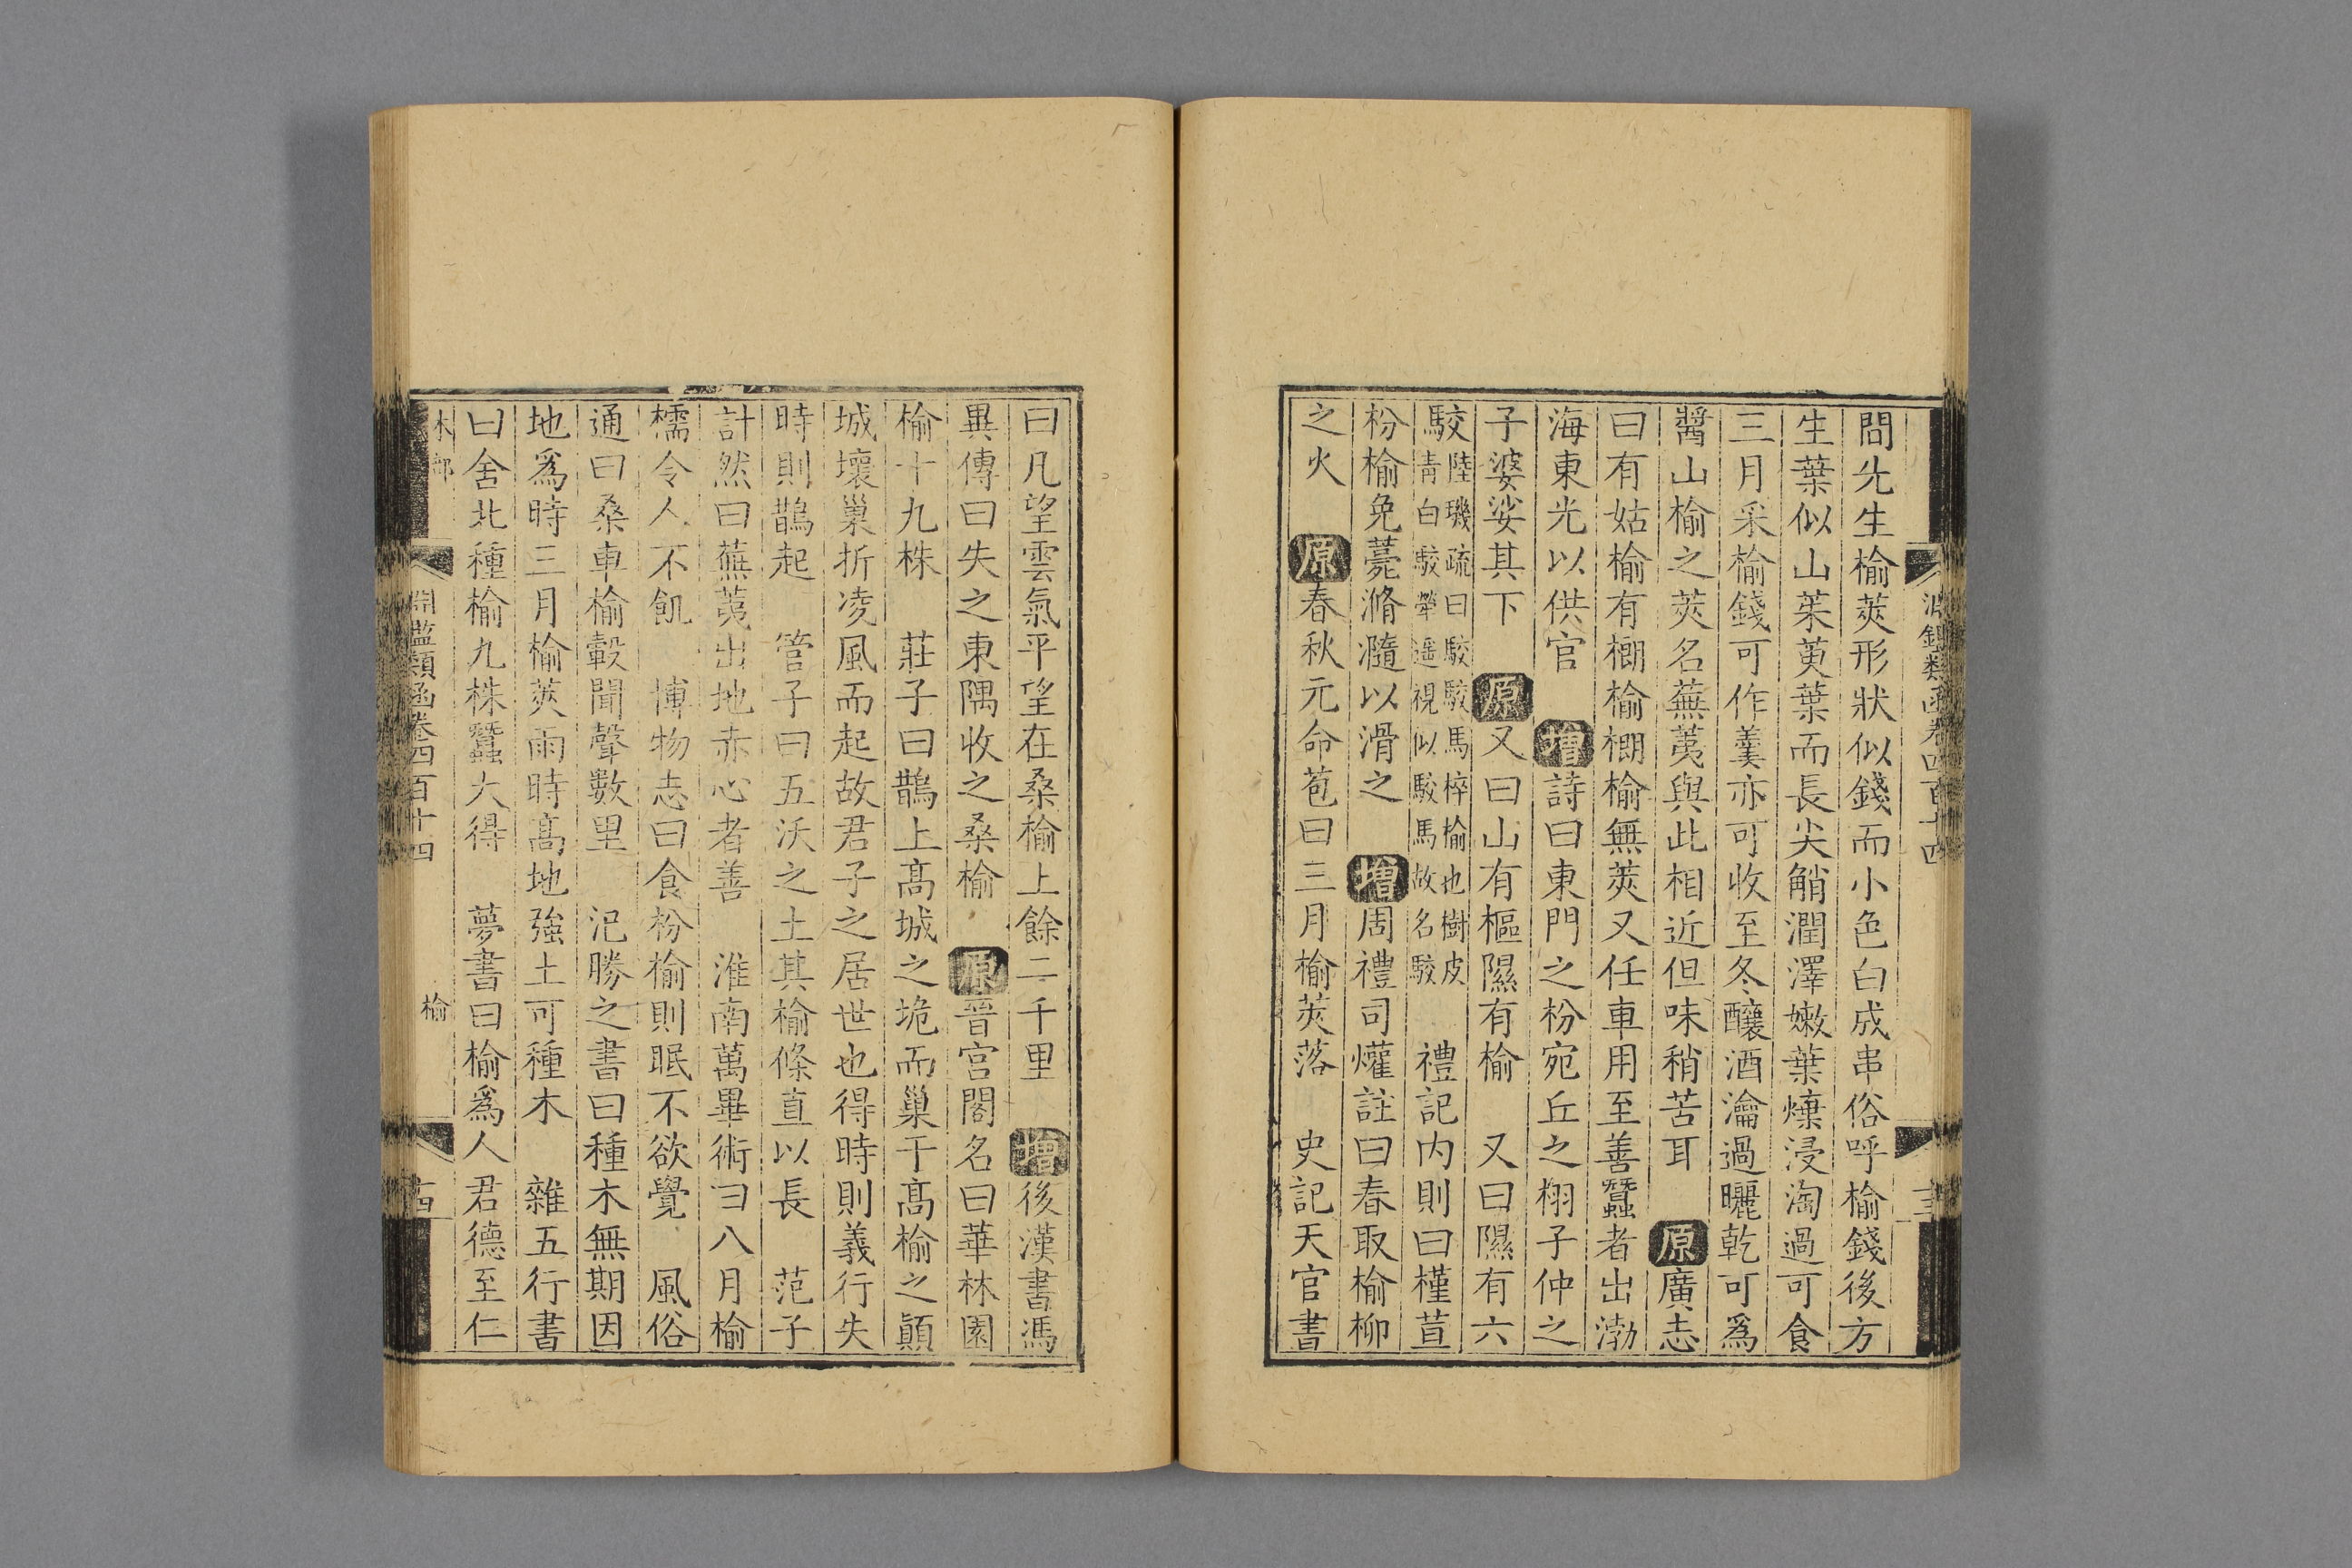 淵鑑類函卷四百十四
問先生榆莢形狀似錢而小色白成串俗呼榆錢後方
生葉似山茱萸葉而長尖䚹潤澤嫩葉煠浸淘過可食
三月采榆錢可作羹亦可收至冬釀酒瀹過曬乾可爲
醬山榆之莢名蕪荑與此相近但味稍苦耳 原廣志
曰有姑榆有榔榆榔榆無莢又任車用至善蠶者出渤
海東光以供官 增詩曰東門之枌宛丘之栩子仲之
子婆娑其下 原又曰山有樞隰有榆 又曰隰有六
駮陸璣疏曰駮駮馬梓榆也樹皮青白駮犖遥視似駮馬故名駮 禮記内則曰槿荁
枌榆免薧滫瀡以滑之 增周禮司爟註曰春取榆柳
之火 原春秋元命苞曰三月榆莢落 史記天官書
曰凡望雲氣平望在桑榆上餘二千里 增後漢書馮
異傳曰失之東隅收之桑榆 原晉宮閣名曰華林園
榆十九株 莊子曰鵲上高城之垝而巢于高榆之顚
城壞巢折凌風而起故君子之居世也得時則義行失
時則鵲起 管子曰五沃之土其榆條直以長 范子
計然曰蕪荑出地赤心者善 淮南萬畢術曰八月榆
檽令人不飢 博物志曰食枌榆則眠不欲覺 風俗
通曰桑車榆轂聞聲數里 汜勝之書曰種木無期因
地爲時三月榆莢雨時高地強土可種木 雜五行書
曰舍北種榆九株蠶大得 夢書曰榆爲人君德至仁
木部
淵鑑類函卷四百十四
榆
十四